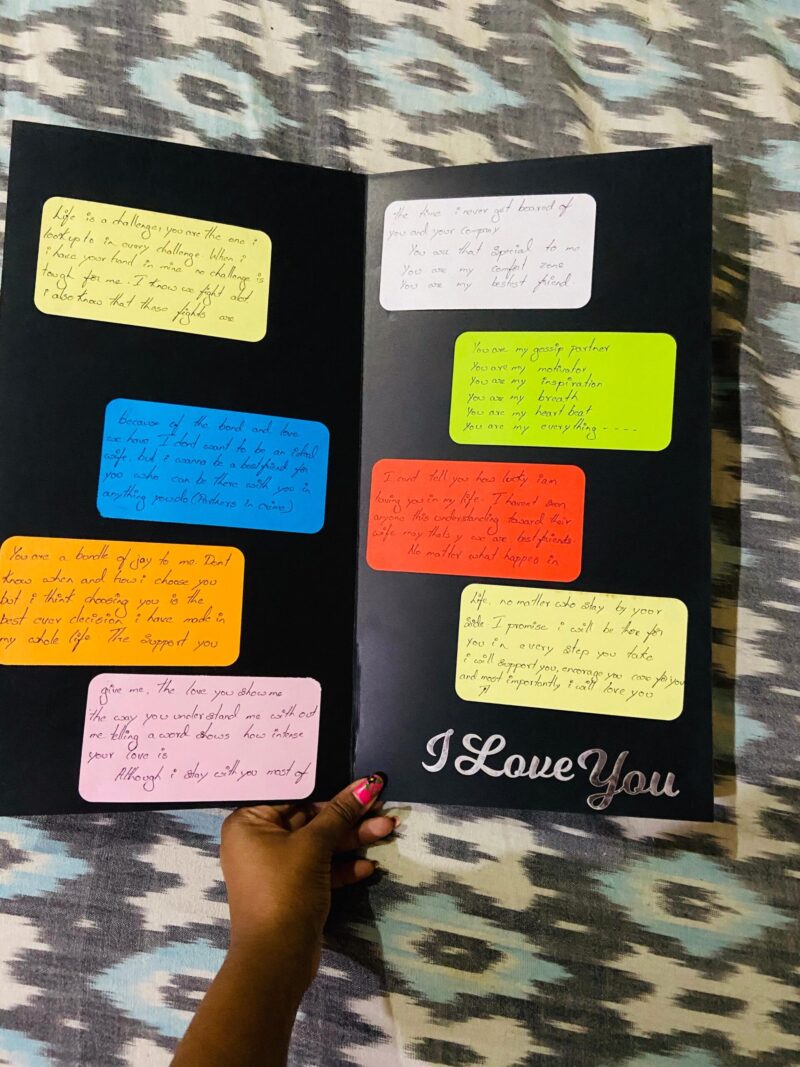 Life is a challenge, you are the one i
look up to in every challenge. When i
i have your hand in mine no challenge is
tough for me. I know we fight alot
i also know that those fights are
because of the bond and love
we have. I dont want to be an ideal
wife, but i wanna be a best friend for
you who can be there with you in
anything you do (Partners in crime)
You are a bundle of joy to me. Dont
know when and how i choose you
but i think choosing you is the
best ever decision i have made in
my whole life. The support you
give me, the love you show me
the way you understand me with out
me telling a word shows how intense
your love is
Although i stay with you most of
the time i never get beared of
you and your company
You are that special to me
You are my comfort zone
You are my bestest friend
You are my gossip partner
You are my motivator
You are my inspiration
You are my breath
You are my heart beat
You are my everything - - - -
I cant tell you how lucky iam
loving you in my life. I havent seen
anyone this understanding toward their
wife may thats y we are best friends.
No matter what happen in
life, no matter who stay by your
side I promise i will be there for
you in every step you take
i will support you, encorage you care for you
and most importantly i will love you
I Love You